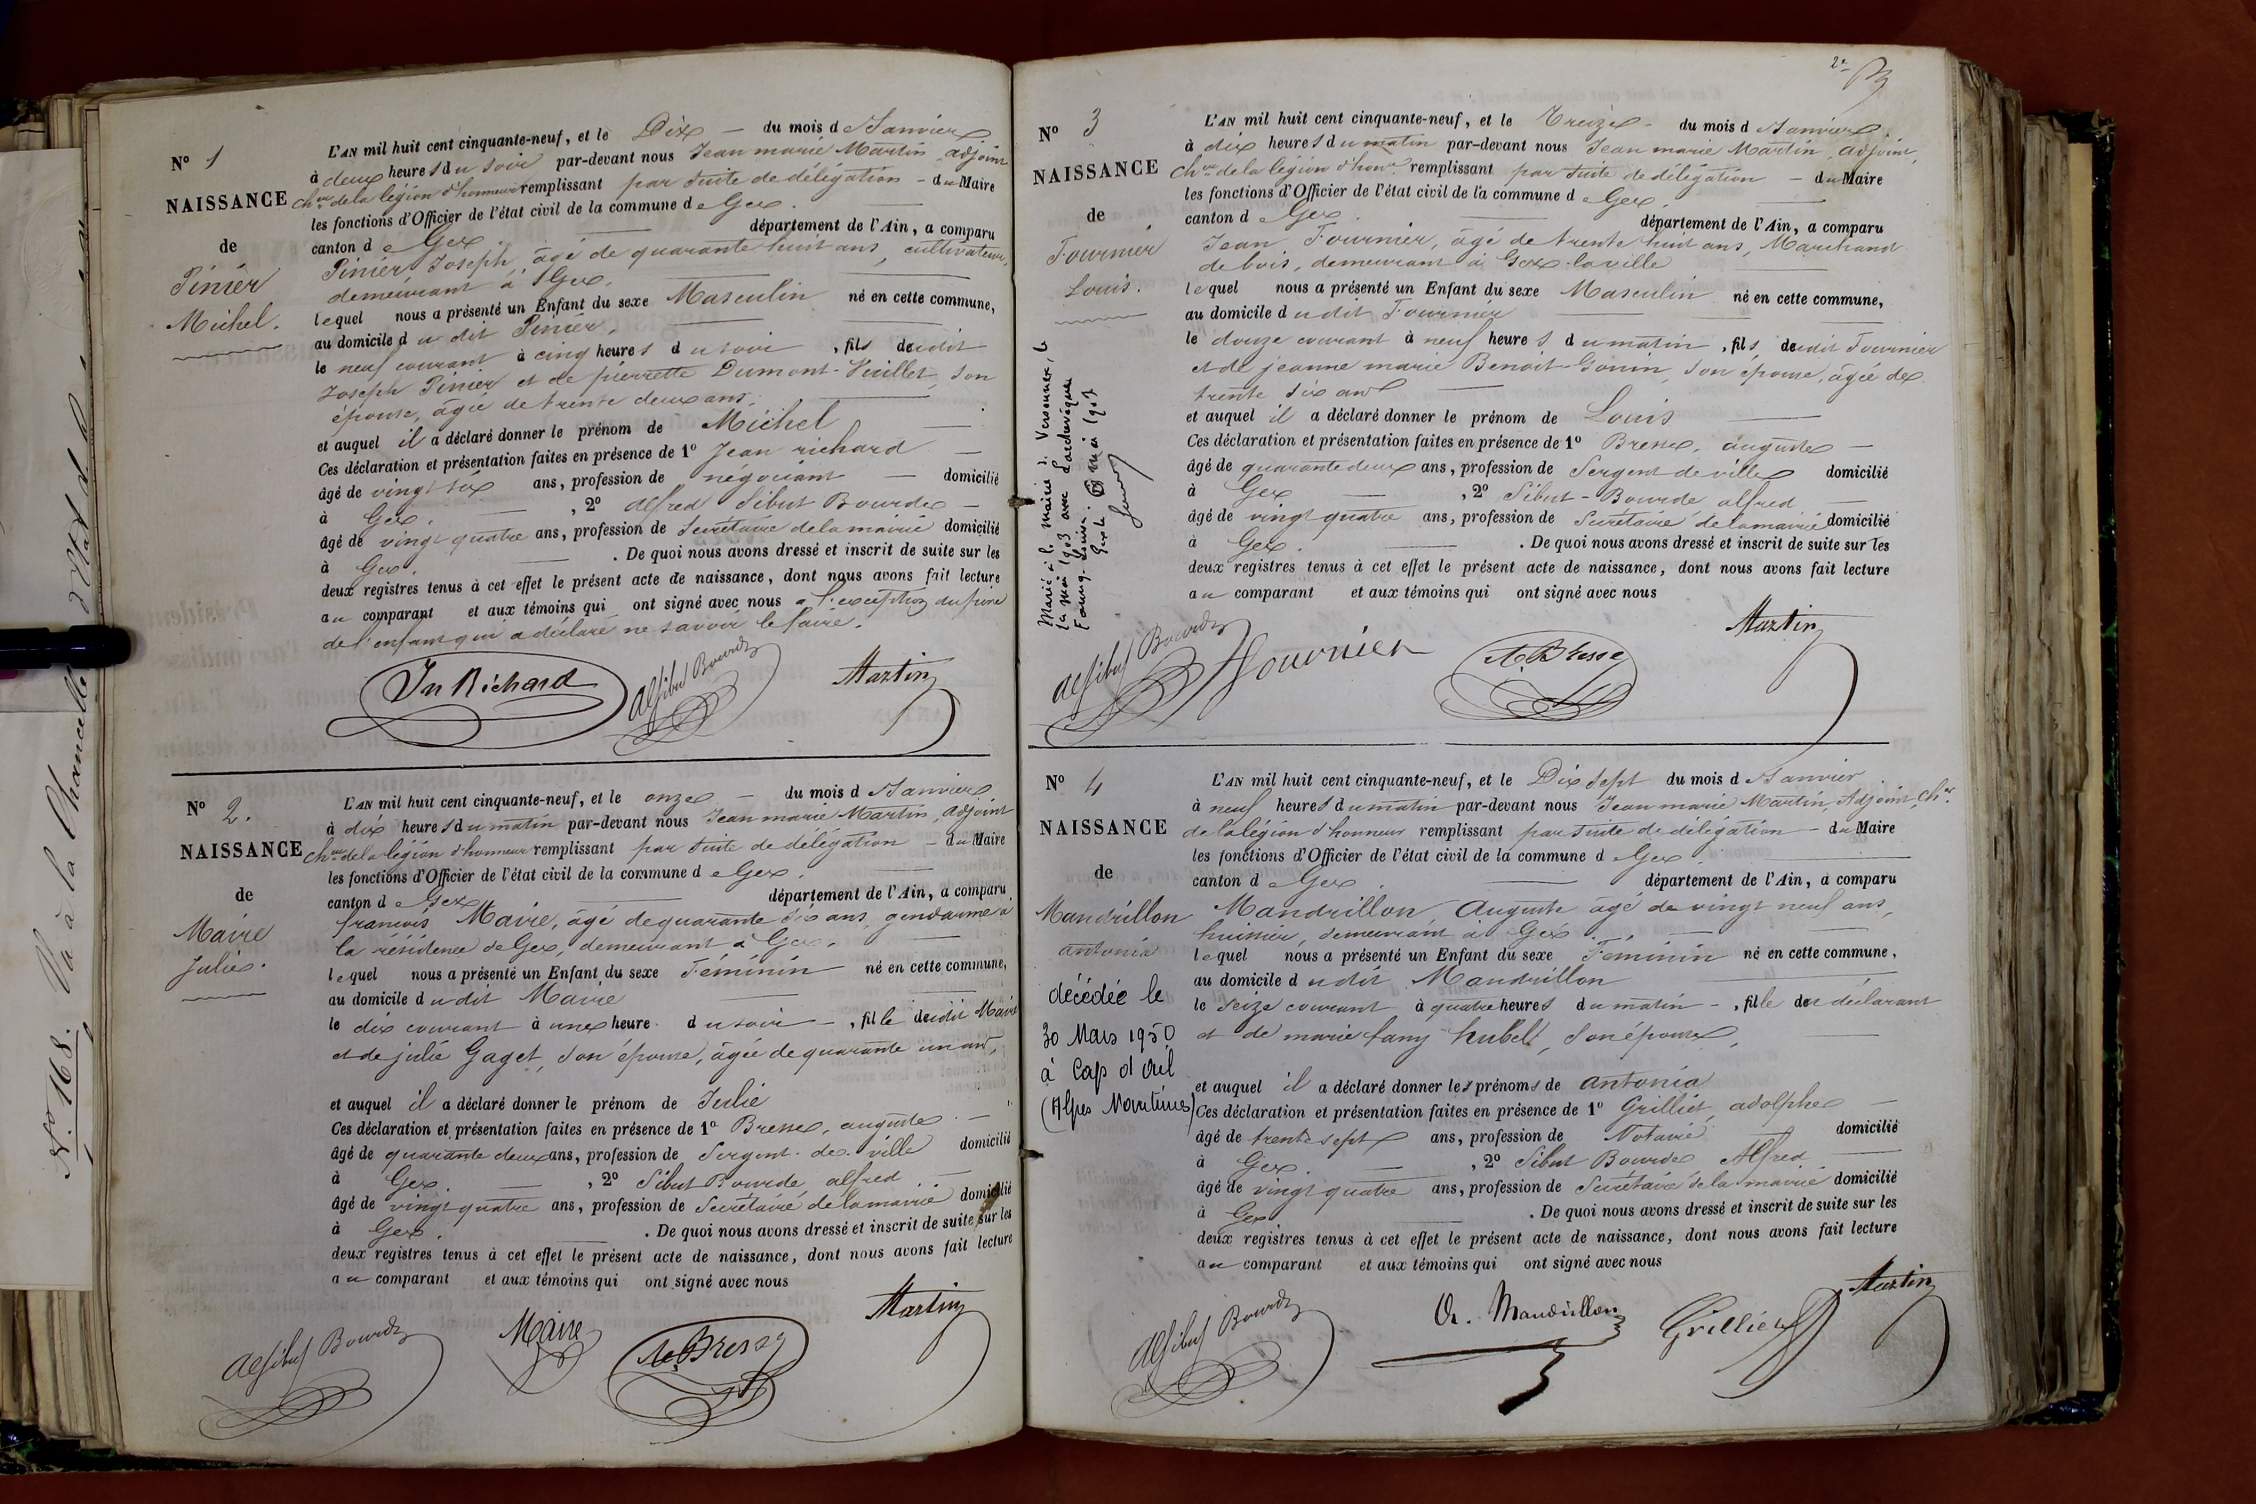 N° 1
NAISSANCE
de
Pinier
Michel.
L'AN mil huit cent cinquante-neuf, et le Dix — du mois de Janvier
à deux heures du soir par-devant nous Jean marie Martin, adjoint
Ch.er de la légion d'honneur remplissant par suite de délégation — du Maire
les fonctions d'Officier de l'état civil de la commune de Gex.
canton de Gex département de l'Ain, a comparu
Pinier Joseph, âgé de quarante huit ans, cultivateur,
demeurant à Gex.
lequel nous a présenté un Enfant du sexe Masculin né en cette commune,
au domicile du dit Pinier,
le neuf courant à cinq heures du soir, fils dudit
Joseph Pinier et de pierrette Dumont-Vuillet, son
épouse, âgée de trente deux ans,
et auquel il a déclaré donner le prénom de Michel
Ces déclaration et présentation faites en présence de 1° Jean richard —
âgé de vingt six ans, profession de négociant — domicilié
à Gex. — , 2° alfred Sibut Bourde —
âgé de vingt quatre ans, profession de Secrétaire de la mairie domicilié
à Gex. — . De quoi nous avons dressé et inscrit de suite sur les
deux registres tenus à cet effet le présent acte de naissance, dont nous avons fait lecture
au comparant et aux témoins qui ont signé avec nous à l'exception du père
de l'enfant qui a déclaré ne savoir le faire.
Jn Richard
Al Sibut Bourde
Martin
N° 2.
NAISSANCE
de
Maire
Julie.
L'AN mil huit cent cinquante-neuf, et le onze — du mois de Janvier
à dix heures du matin par-devant nous Jean marie Martin, adjoint
Ch.er de la légion d'honneur remplissant par suite de délégation — du Maire
les fonctions d'Officier de l'état civil de la commune de Gex.
canton de Gex département de l'Ain, a comparu
françois Maire, âgé de quarante six ans, gendarme à
la résidence de Gex, demeurant à Gex.
lequel nous a présenté un Enfant du sexe Féminin né en cette commune,
au domicile dudit Maire
le dix courant à une heure du soir —, fille dudit Maire
et de julie Gaget, son épouse, âgée de quarante un ans,
et auquel il a déclaré donner le prénom de Julie
Ces déclaration et présentation faites en présence de 1° Bresse, auguste —
âgé de quarante deux ans, profession de Sergent de ville domicilié
à Gex. — , 2° Sibut Bourde alfred —
âgé de vingt quatre ans, profession de Secrétaire de la mairie domicilié
à Gex. — . De quoi nous avons dressé et inscrit de suite sur les
deux registres tenus à cet effet le présent acte de naissance, dont nous avons fait lecture
au comparant et aux témoins qui ont signé avec nous
Al Sibut Bourde
Maire
A. Bresse
Martin
N° 168. Vu à la Chancellerie
2e
N° 3
NAISSANCE
de
Fournier
Louis.
Marié à la mairie de Versonnex, le
mai 1903 avec
Gex le mai 1903
L'AN mil huit cent cinquante-neuf, et le Treize — du mois de Janvier
à dix heures du matin par-devant nous Jean marie Martin, adjoint,
Ch.er de la légion d'hon.r remplissant par suite de délégation — du Maire
les fonctions d'Officier de l'état civil de la commune de Gex.
canton de Gex. département de l'Ain, a comparu
Jean Fournier, âgé de trente huit ans, Marchand
de bois, demeurant à Gex-la ville
lequel nous a présenté un Enfant du sexe Masculin né en cette commune,
au domicile dudit Fournier
le douze courant à neuf heures du matin, fils dudit Fournier
et de jeanne marie Benoit-Gonin, son épouse, âgée de
trente six ans
et auquel il a déclaré donner le prénom de Louis
Ces déclaration et présentation faites en présence de 1° Bresse, auguste —
âgé de quarante deux ans, profession de Sergent de ville domicilié
à Gex — , 2° Sibut-Bourde alfred —
âgé de vingt quatre ans, profession de Secrétaire de la mairie domicilié
à Gex. — . De quoi nous avons dressé et inscrit de suite sur les
deux registres tenus à cet effet le présent acte de naissance, dont nous avons fait lecture
au comparant et aux témoins qui ont signé avec nous
Al Sibut Bourde
Fournier
A. Bresse
Martin
N° 4
NAISSANCE
de
Mandrillon
antonia
décédée le
30 Mars 1950
à Cap d'Ail
(Alpes Maritimes)
L'AN mil huit cent cinquante-neuf, et le Dix sept du mois de Janvier
à neuf heures du matin par-devant nous Jean marie Martin, Adjoint, Ch.er
de la légion d'honneur remplissant par suite de délégation — du Maire
les fonctions d'Officier de l'état civil de la commune de Gex.
canton de Gex. département de l'Ain, a comparu
Mandrillon, Auguste âgé de vingt neuf ans,
huissier, demeurant à Gex.
lequel nous a présenté un Enfant du sexe Féminin né en cette commune,
au domicile dudit Mandrillon
le seize courant à quatre heures du matin —, fille de déclarant
et de marie fany hubell, son épouse,
et auquel il a déclaré donner les prénoms de antonia
Ces déclaration et présentation faites en présence de 1° Grilliet adolphe —
âgé de trente sept ans, profession de Notaire — domicilié
à Gex. — , 2° Sibut Bourde Alfred —
âgé de vingt quatre ans, profession de Secrétaire de la mairie domicilié
à Gex — . De quoi nous avons dressé et inscrit de suite sur les
deux registres tenus à cet effet le présent acte de naissance, dont nous avons fait lecture
au comparant et aux témoins qui ont signé avec nous
Al Sibut Bourde
A. Mandrillon
Grilliet
Martin